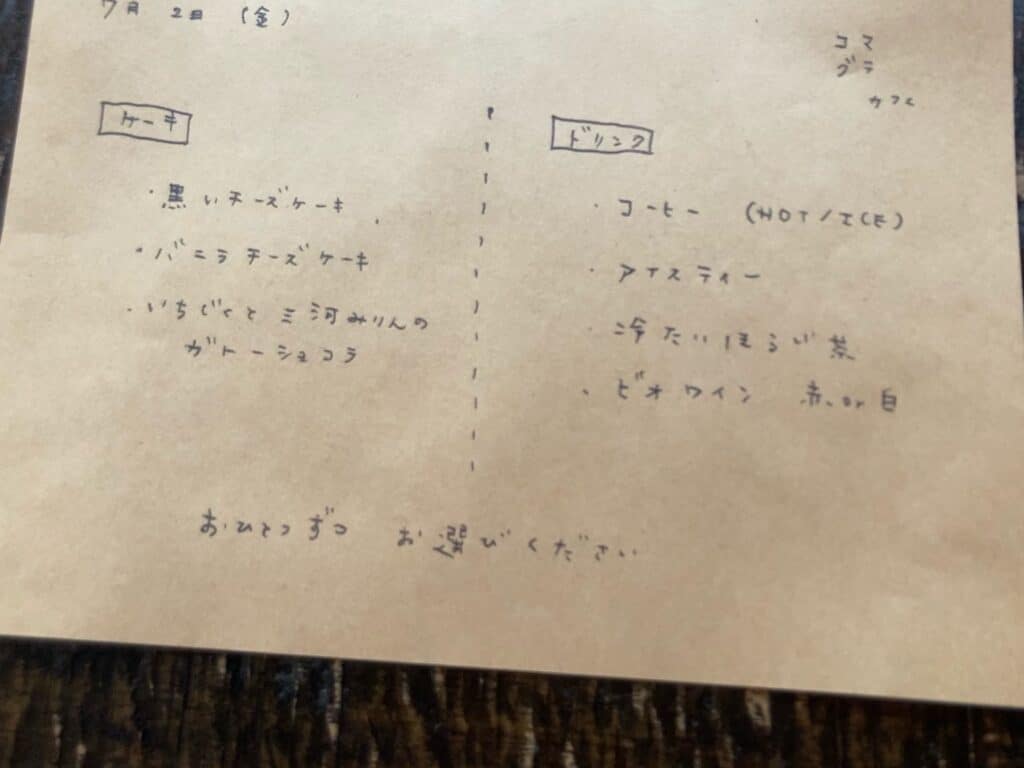 7月 2日 (金)
コマ
グラ
カフェ
ケーキ
・黒いチーズケーキ
・バニラチーズケーキ
・いちじくと三河みりんの
ガトーショコラ
ドリンク
・コーヒー (HOT/ICE)
・アイスティー
・冷たいほうじ茶
・ビオワイン 赤 or 白
おひとつずつ お選びください